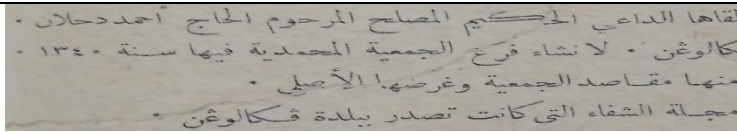 لقاها الداعي الحكيم المصلح المرحوم الحاج أحمد دحلان .
كالوڠن . لا نشاء فرع الجمعية المحمدية فيها سنة ١٣٤٠ .
منها مقاصد الجمعية وغرضها الأصلي .
مجلة الشفاء التي كانت تصدر ببلدة فكالوڠن .